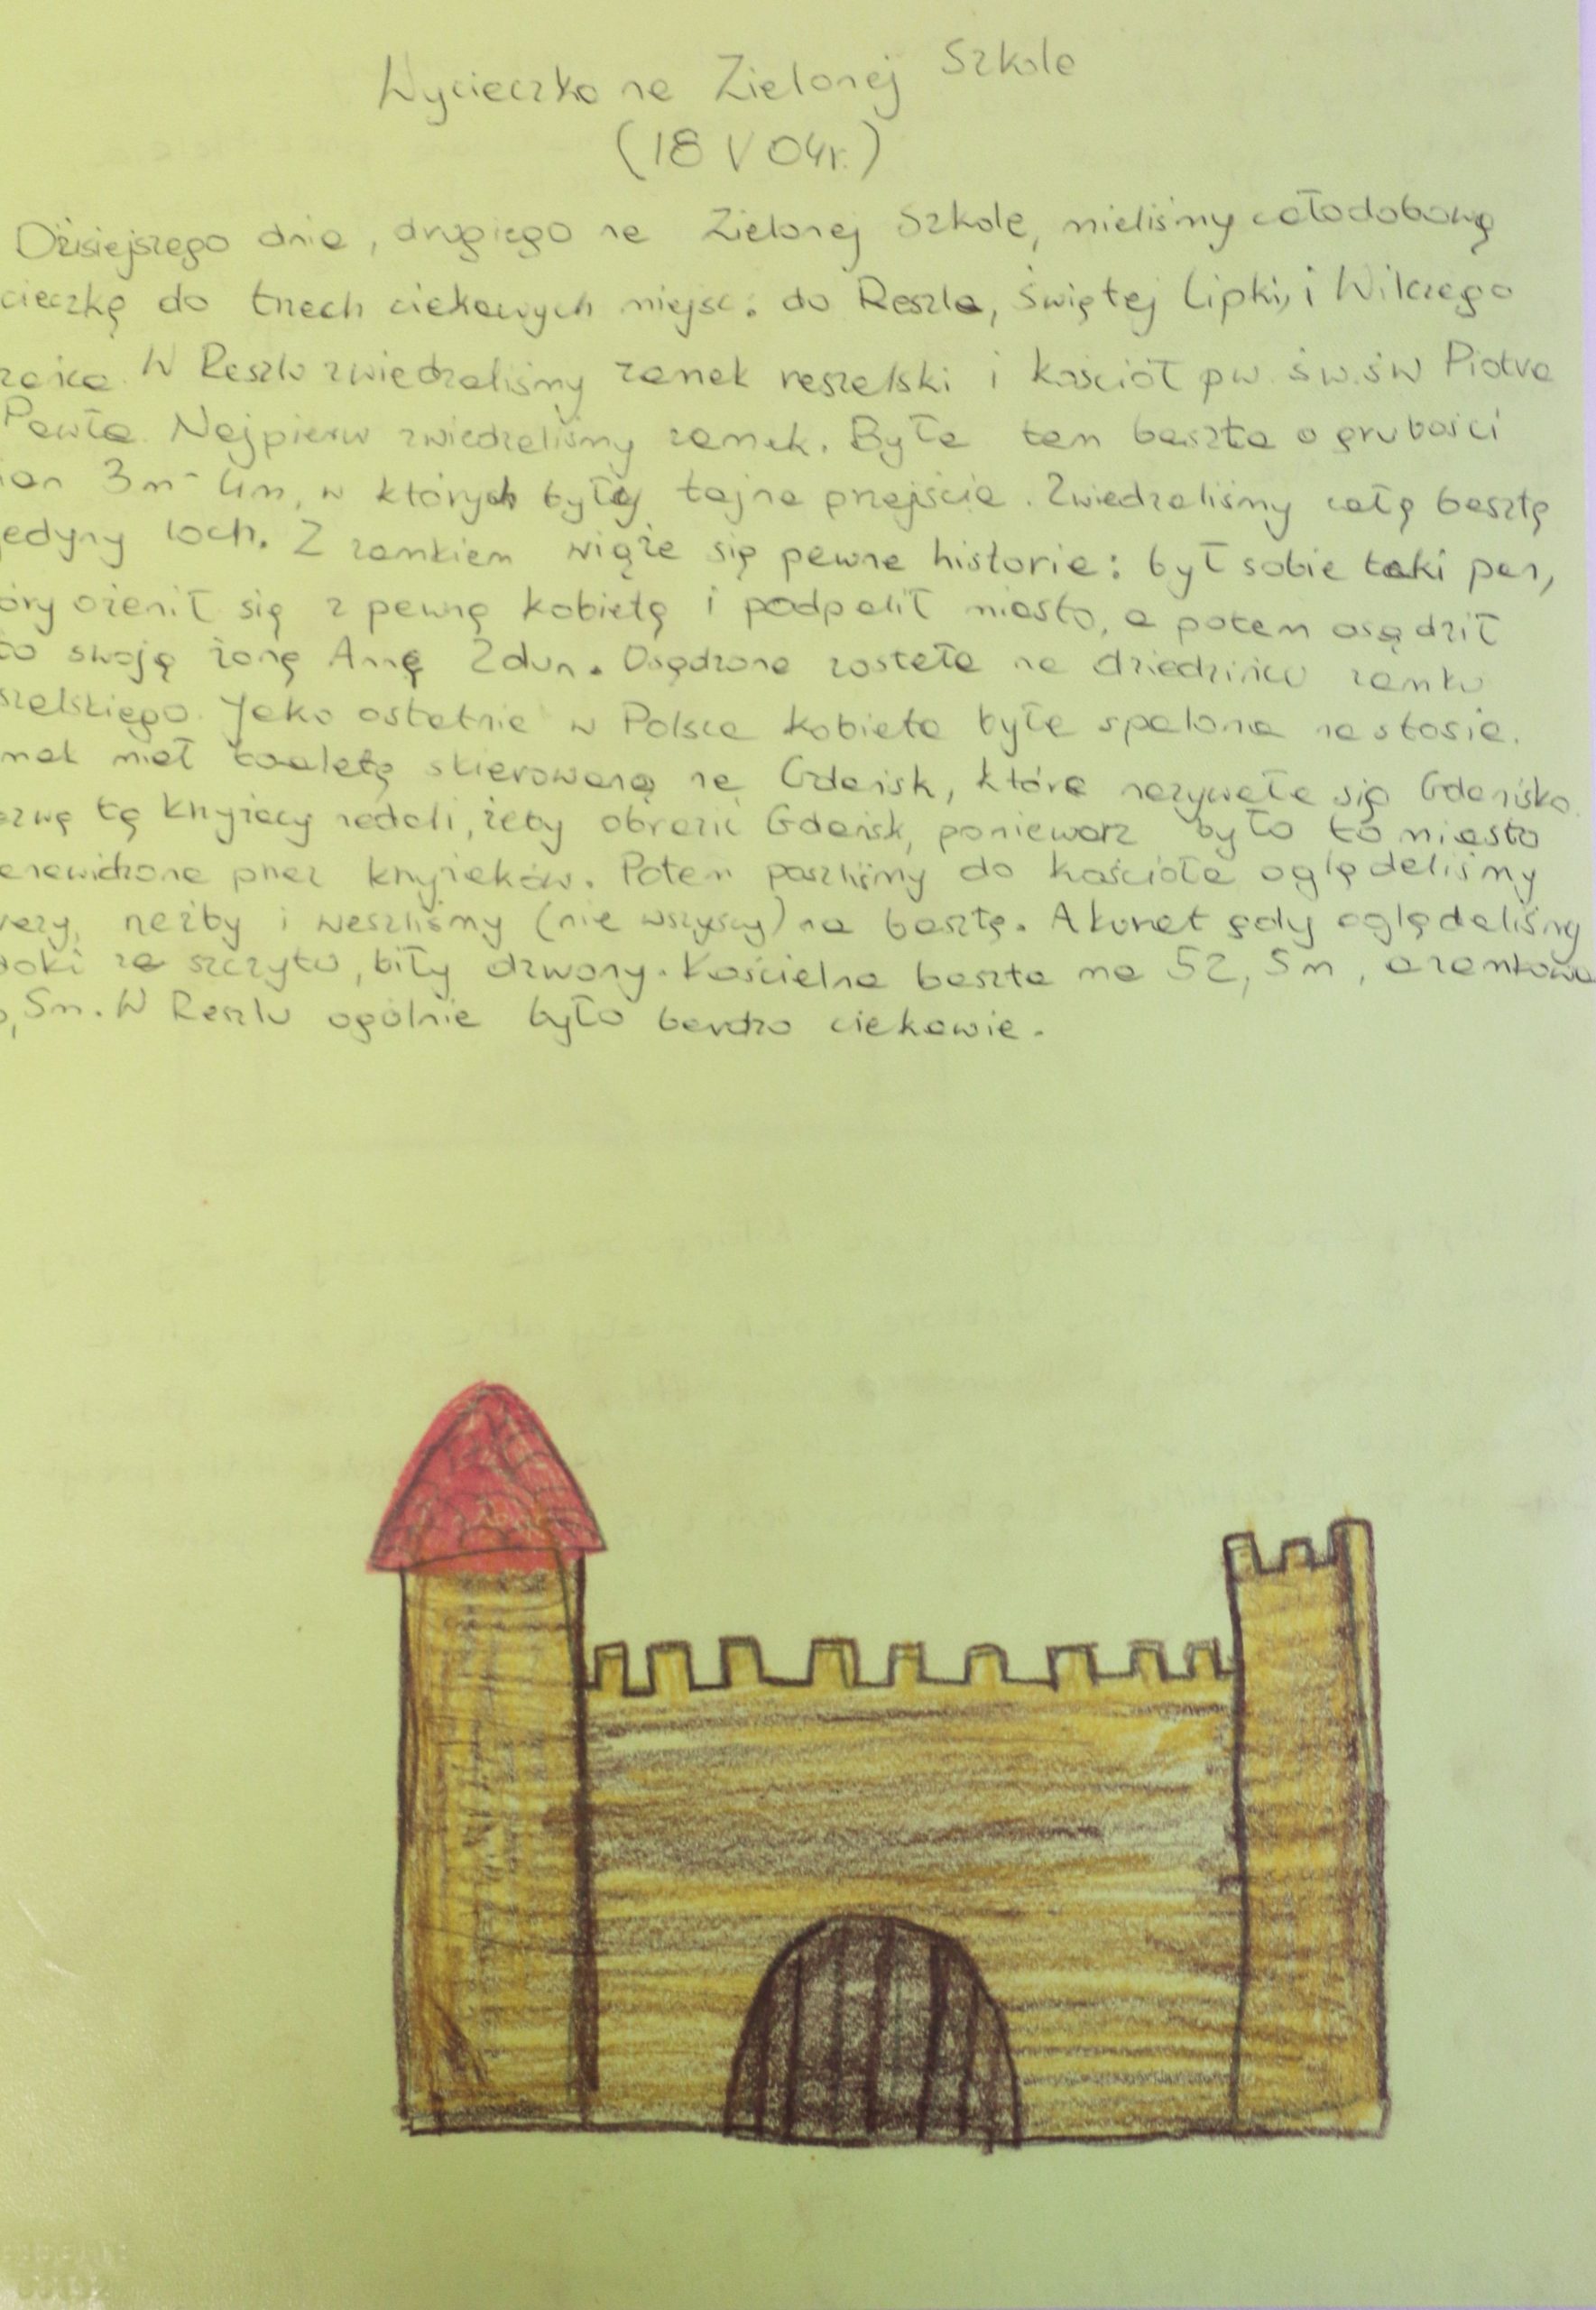 Wycieczka na Zielonej Szkole
(18 V 04r.)
Dzisiejszego dnia, drugiego na Zielonej Szkole, mieliśmy całodobową
cieczkę do trzech ciekawych miejsc: do Reszla, Świętej Lipki, i Wilczego
zańca. W Reszlu zwiedzaliśmy zamek reszelski i kościół pw. św.św Piotra
Pawła. Najpierw zwiedzaliśmy zamek. Była tam baszta o grubości
ian 3m-4m, w których były tajne przejścia. Zwiedzaliśmy całą basztę
jedyny loch. Z zamkiem wiąże się pewna historia: był sobie taki pan,
óry ożenił się z pewną kobietą i podpalił miasto, a potem osądził
to swoją żonę Annę Zdun. Osądzona została na dziedzińcu zamku
szelskiego. Jako ostatnia w Polsce kobieta była spalona na stosie.
mek miał toaletę skierowaną na Gdańsk, która nazywała się Gdanisko.
azwę tę krzyżacy nadali, żeby obrazić Gdańsk, ponieważ było to miasto
enawidzone przez krzyżaków. Potem poszliśmy do kościoła oglądaliśmy
rzeźby i weszliśmy (nie wszyscy) na basztę. Akurat gdy oglądaliśmy
doki ze szczytu, biły dzwony. Kościelna baszta ma 52,5m, a zamkowa
,5m. W Reszlu ogólnie było bardzo ciekawie.